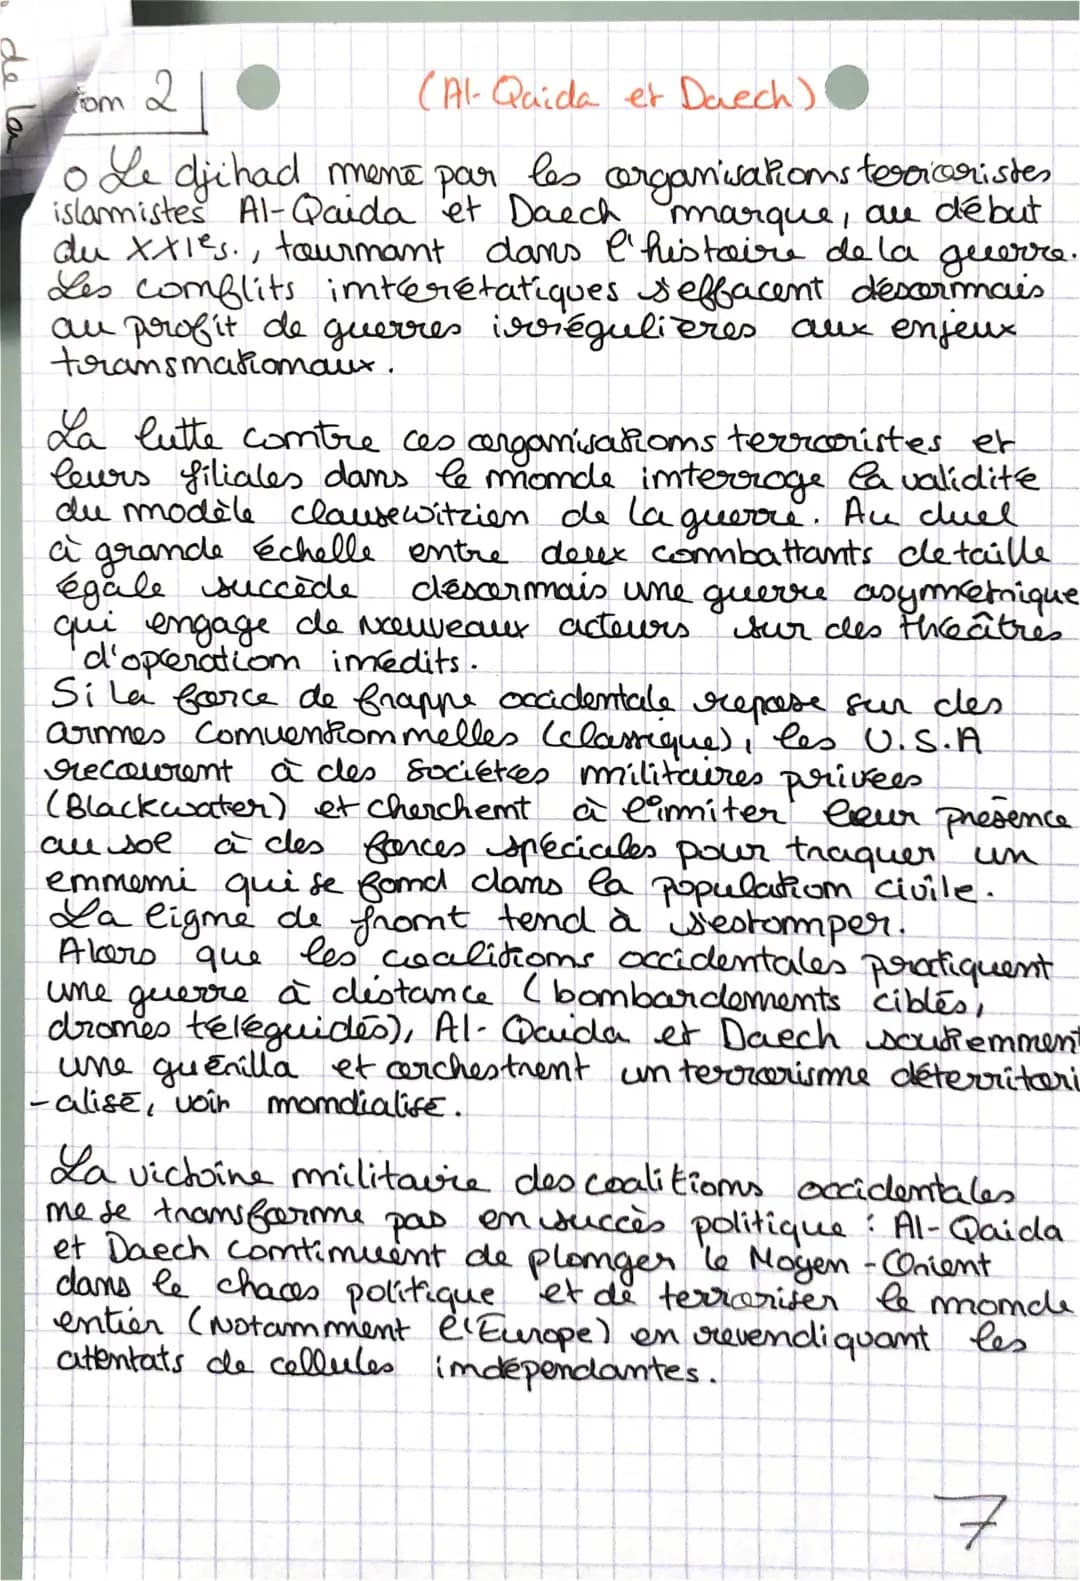 de la
tion 2
(Al-Qaida et Daech)
o Le djihad mené par les organisations terroristes
islamistes Al-Qaida et Daech marque, au début
du XXIe s., tournant dans l'histoire de la guerre.
Les conflits interétatiques s'effacent désormais
au profit de guerres irrégulières aux enjeux
transnationaux.
La lutte contre ces organisations terroristes et
leurs filiales dans le monde interroge la validité
du modèle clausewitzien de la guerre. Au duel
à grande échelle entre deux combattants de taille
égale succède désormais une guerre asymétrique
qui engage de nouveaux acteurs sur des théâtres
d'opération inédits.
Si la force de frappe occidentale repose sur des
armes conventionnelles (classique), les U.S.A
recourent à des sociétés militaires privées
(Blackwater) et cherchent à limiter leur présence
au sol à des forces spéciales pour traquer un
ennemi qui se fond dans la population civile.
La ligne de front tend à s'estomper.
Alors que les coalitions occidentales pratiquent
une guerre à distance (bombardements ciblés,
drones téléguidés), Al-Qaida et Daech soutiennent
une guérilla et orchestrent un terrorisme déterritori
-alisé, voir mondialisé.
La victoire militaire des coalitions occidentales
ne se transforme pas en succès politique : Al-Qaida
et Daech continuent de plonger le Moyen-Orient
dans le chaos politique et de terroriser le monde
entier (Notamment l'Europe) en revendiquant les
attentats de cellules indépendantes.
7